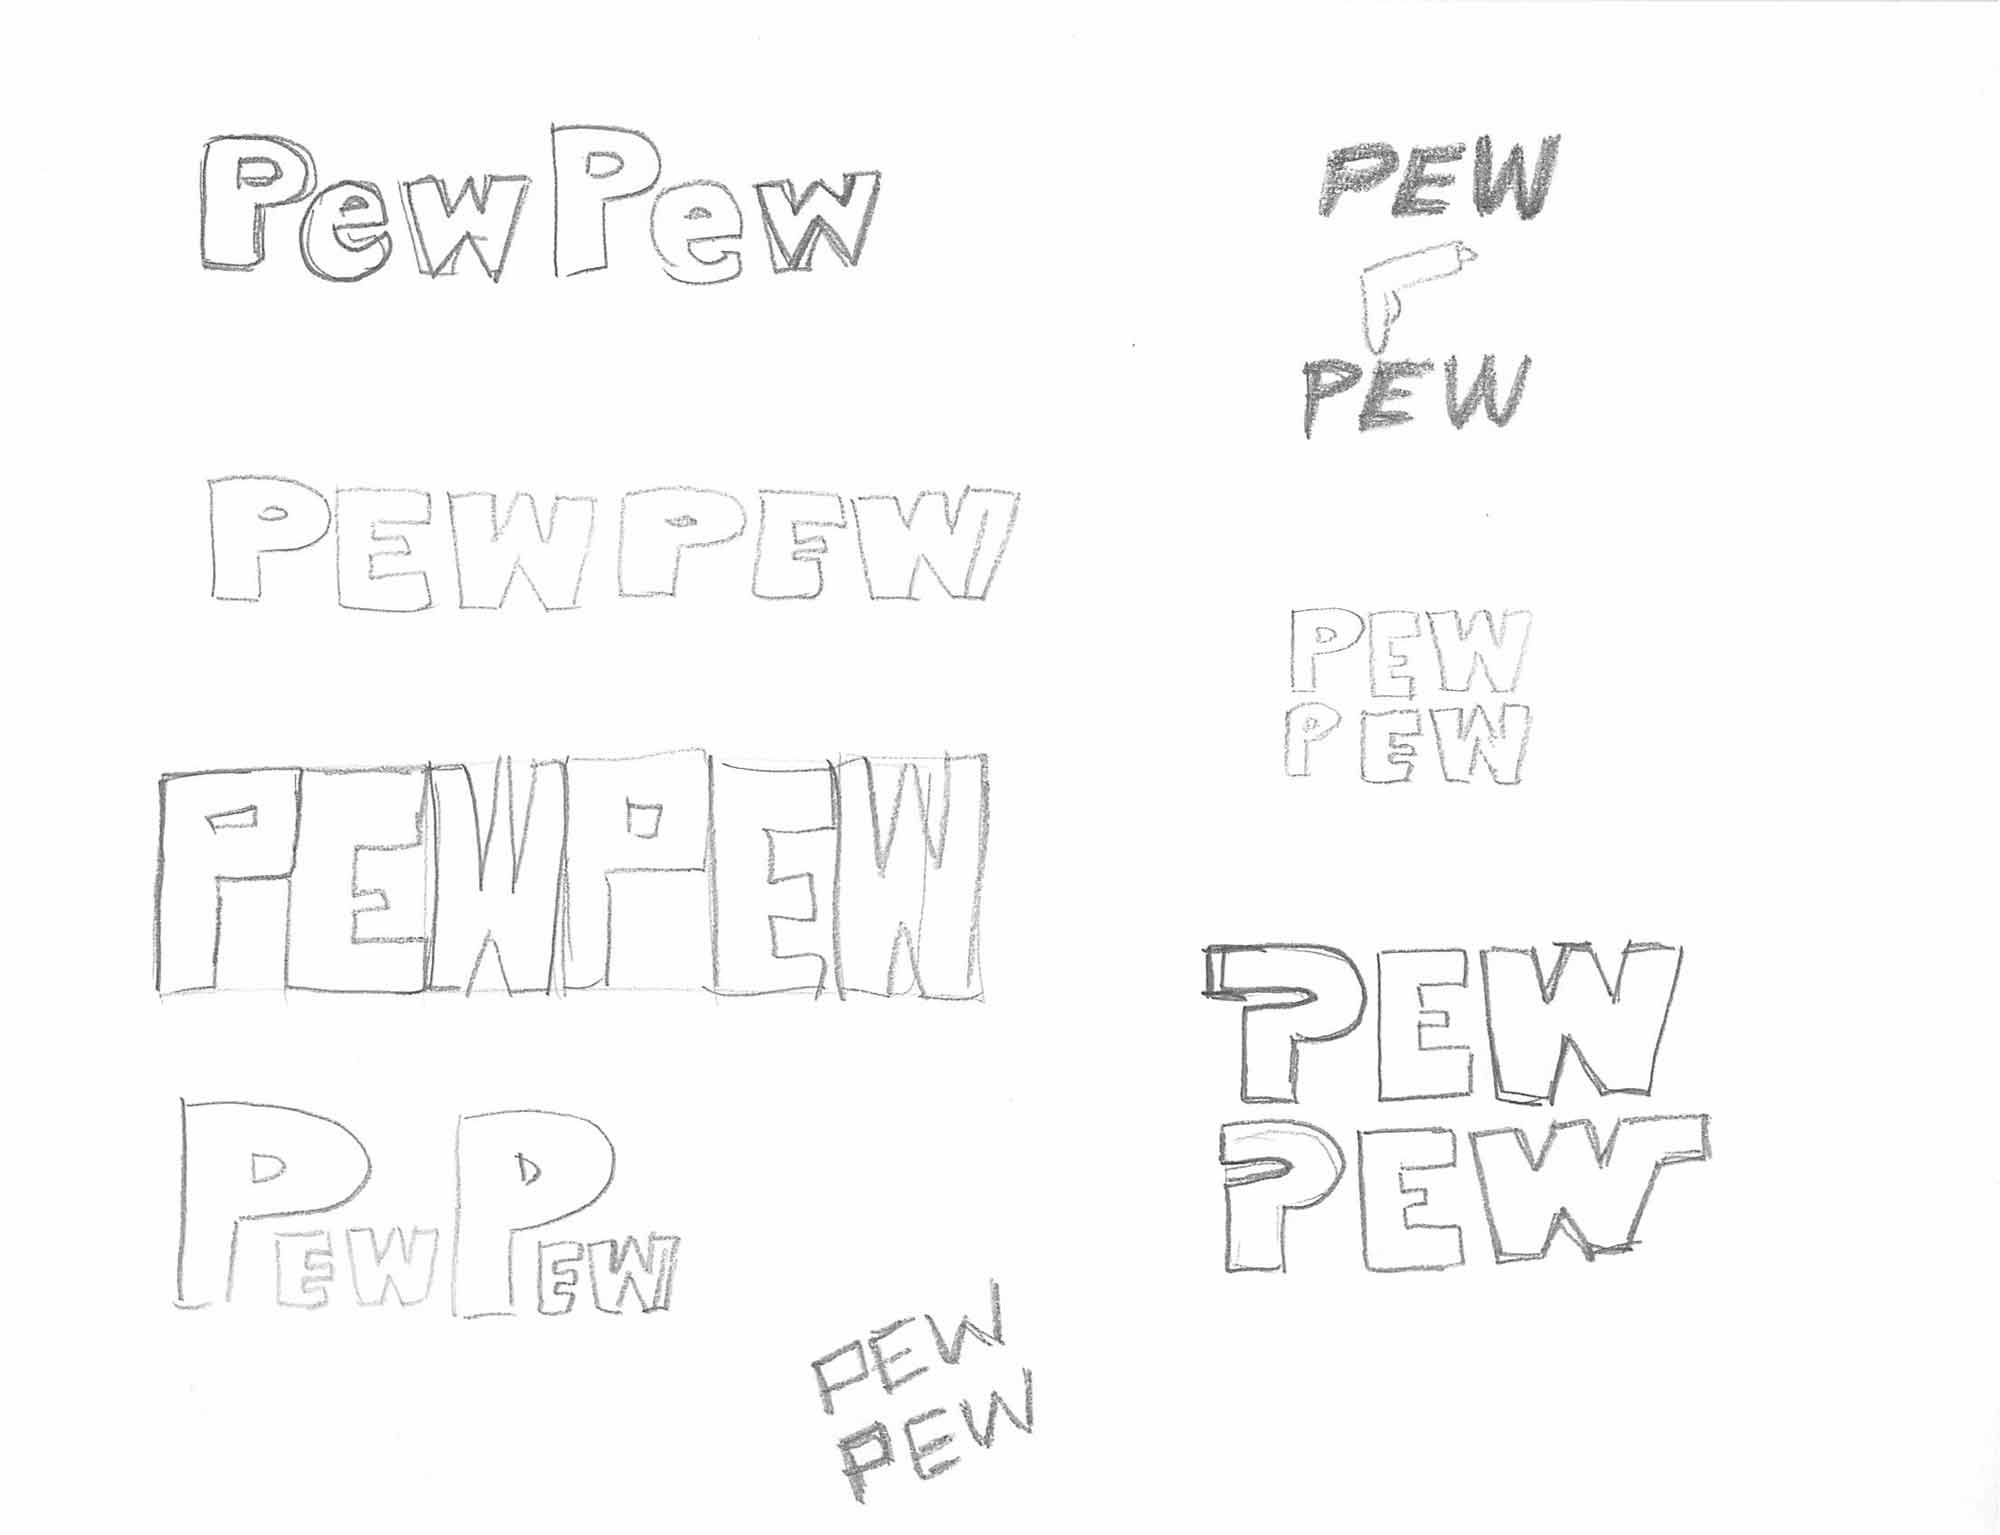 PewPew
PEWPEW
PEWPEW
PEWPEW
PEW
PEW
PEW
PEW
PEW
PEW
PEW
PEW